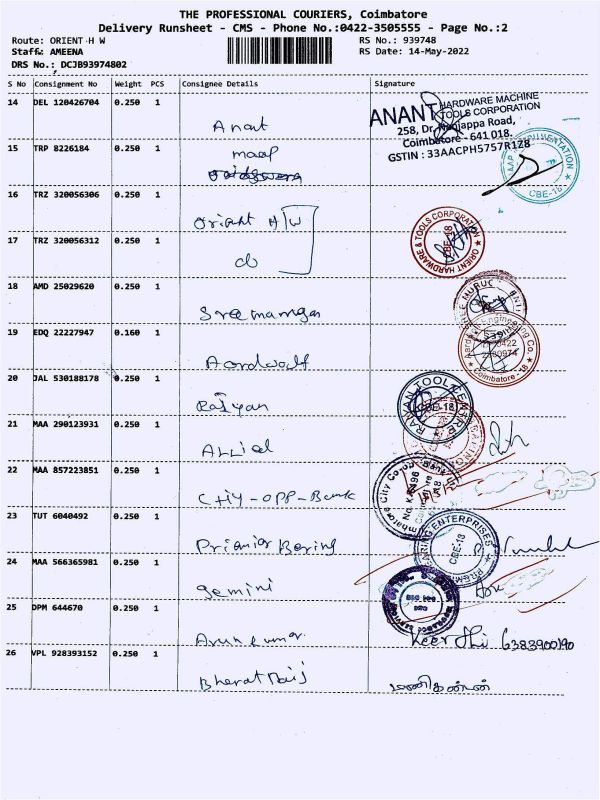 THE PROFESSIONAL COURIERS, Coimbatore
Delivery Runsheet - CMS - Phone No.:0422-3505555 - Page No.:2
Route: ORIENT H W
RS No.: 939748
Staff: AMEENA
RS Date: 14-May-2022
DRS No.: DCJB93974802
S No Consignment No Weight PCS Consignee Details Signature
14 DEL 120426704 0.250 1 Anant
ANANT HARDWARE MACHINE
TOOLS CORPORATION
258, Dr. Nanjappa Road,
Coimbatore - 641 018.
GSTIN : 33AACPH5757R1Z8
15 TRP 8226184 0.250 1 maap
CBE-18
16 TRZ 320056306 0.250 1 Orient H/W
ORIENT HARDWARE & TOOLS CORPORATION
CBE-18
17 TRZ 320056312 0.250 1 do
18 AMD 25029620 0.250 1 Sreemurugan
19 EDQ 22227947 0.160 1 Aardwolf
Engineering Co.
Coimbatore - 18
20 JAL 530188178 0.250 1 Raiyan
RAIYAN TOOL CENTRE
CBE-18
21 MAA 290123931 0.250 1 Allied
22 MAA 857223851 0.250 1 City-opp-Bank
23 TUT 6040492 0.250 1 Primier Bering
BEARING ENTERPRISES
CBE-18
24 MAA 566365981 0.250 1 gemini
25 DPM 644670 0.250 1 Arun kumar
Keerthi 6383900190
26 VPL 928393152 0.250 1 Bharat
மணிகண்டன்